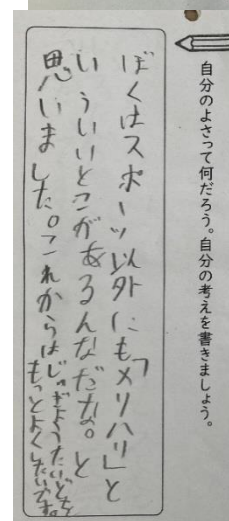 自分のよさって何だろう。自分の考えを書きましょう。
ぼくはスポーツ以外にも「メリハリ」と
いういいとこがあるんなだな。と
思いました。これからはじゅぎょうたいどを
もっとよくしたいです。